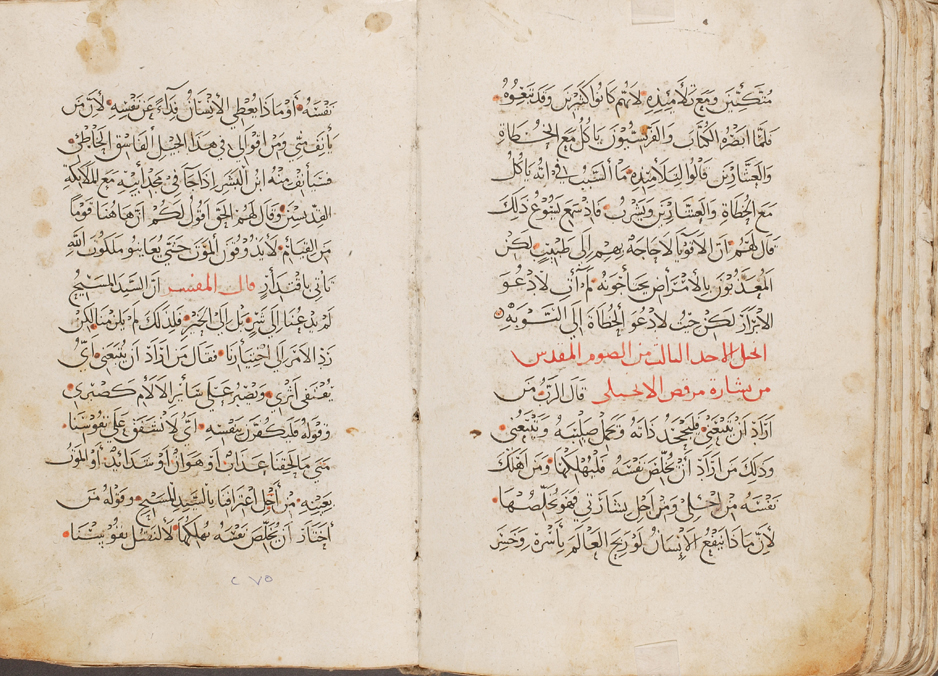 متكيين ومع تلاميذه لانهم كانوا كثيرين وقد تبعوه
فلما ابصره الكتاب والفريسيون ياكل مع الخطاة
والعشارين قالوا لتلاميذه ما السبب في انه ياكل
مع الخطاة والعشارين ويشرب فاذ سمع يسوع ذلك
قال لهم ان الاقويا لا حاجة بهم الى طبيب لكن
المعذبون بالامراض يحتاجونه لم آتي لادعو
الابرار لكن جيت لادعو الخطاة الي التوبه
انجيل الاحد الثالث من الصوم المقدس
من بشارة مرقص الانجيلي قال الرب من
اراد ان يتبعني فليجحد ذاته ويحمل صليبه ويتبعني
وذلك من اراد ان يخلص نفسه فليهلكها ومن اهلك
نفسه من اجلي ومن اجل بشارتي فهو يخلصها
لان ماذا ينفع الانسان لو ربح العالم باسره وخسر
نفسه او ماذا يعطي الانسان فدآء عن نفسه لان من
يانف مني ومن اقوالي في هذا الجيل الفاسق الخاطي
فسيانف منه ابن البشر اذا جا في مجد ابيه مع الملايكة
القديسين وقال لهم الحق اقول لكم ان هاهنا قوماً
من القيام لا يذوقون الموت حتى يعاينو ملكوت الله
ياتي باقتدار قال المفسر ان السيد المسيح
لم يدعنا الى شر بل الى الخير فلذلك لم يلزمنا لكن
رد الامر الى اختيارنا فقال من اراد ان يتبعني اي
يقتفي اثري ويصبر على ساير الالام كصبري
وقوله فليكفر بنفسه اي لا نشفق على نفوسنا
متى ما لحقنا عذاب او هوان او شدائد او الموت
بعينه من اجل اعترافنا بالسيد المسيح وقوله من
اختار ان يخلص نفسه يهلكها لا لنقتل نفوسنا
٢٧٥